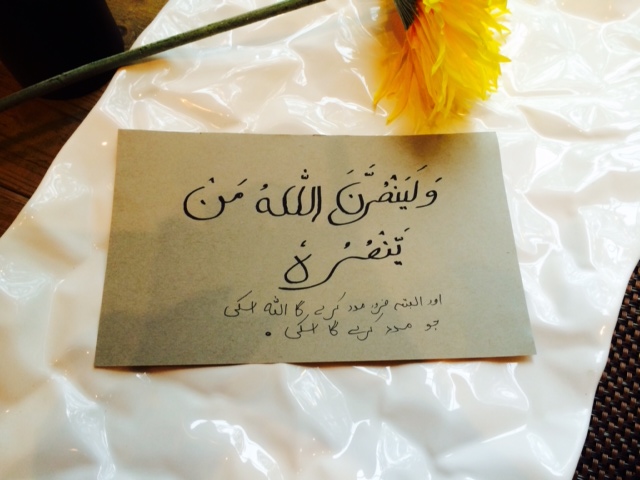 وَلَيَنْصُرَّنَ اللّٰهُ مَنْ
يَّنْصُرُهٗ
اور البتہ ضرور مدد کرے گا اللہ اسکی
جو مدد کرے گا اسکی .